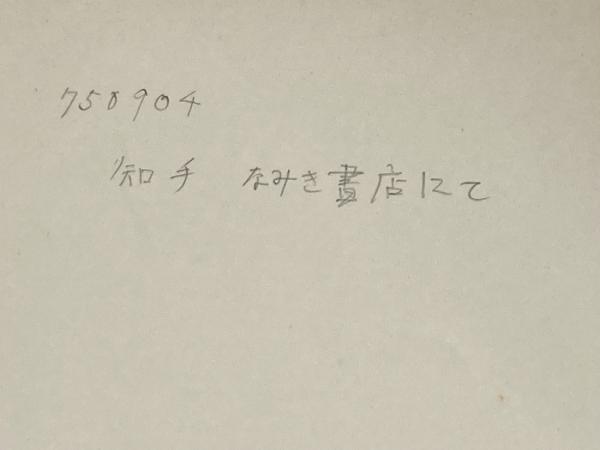 750904
知手 なみき書店にて